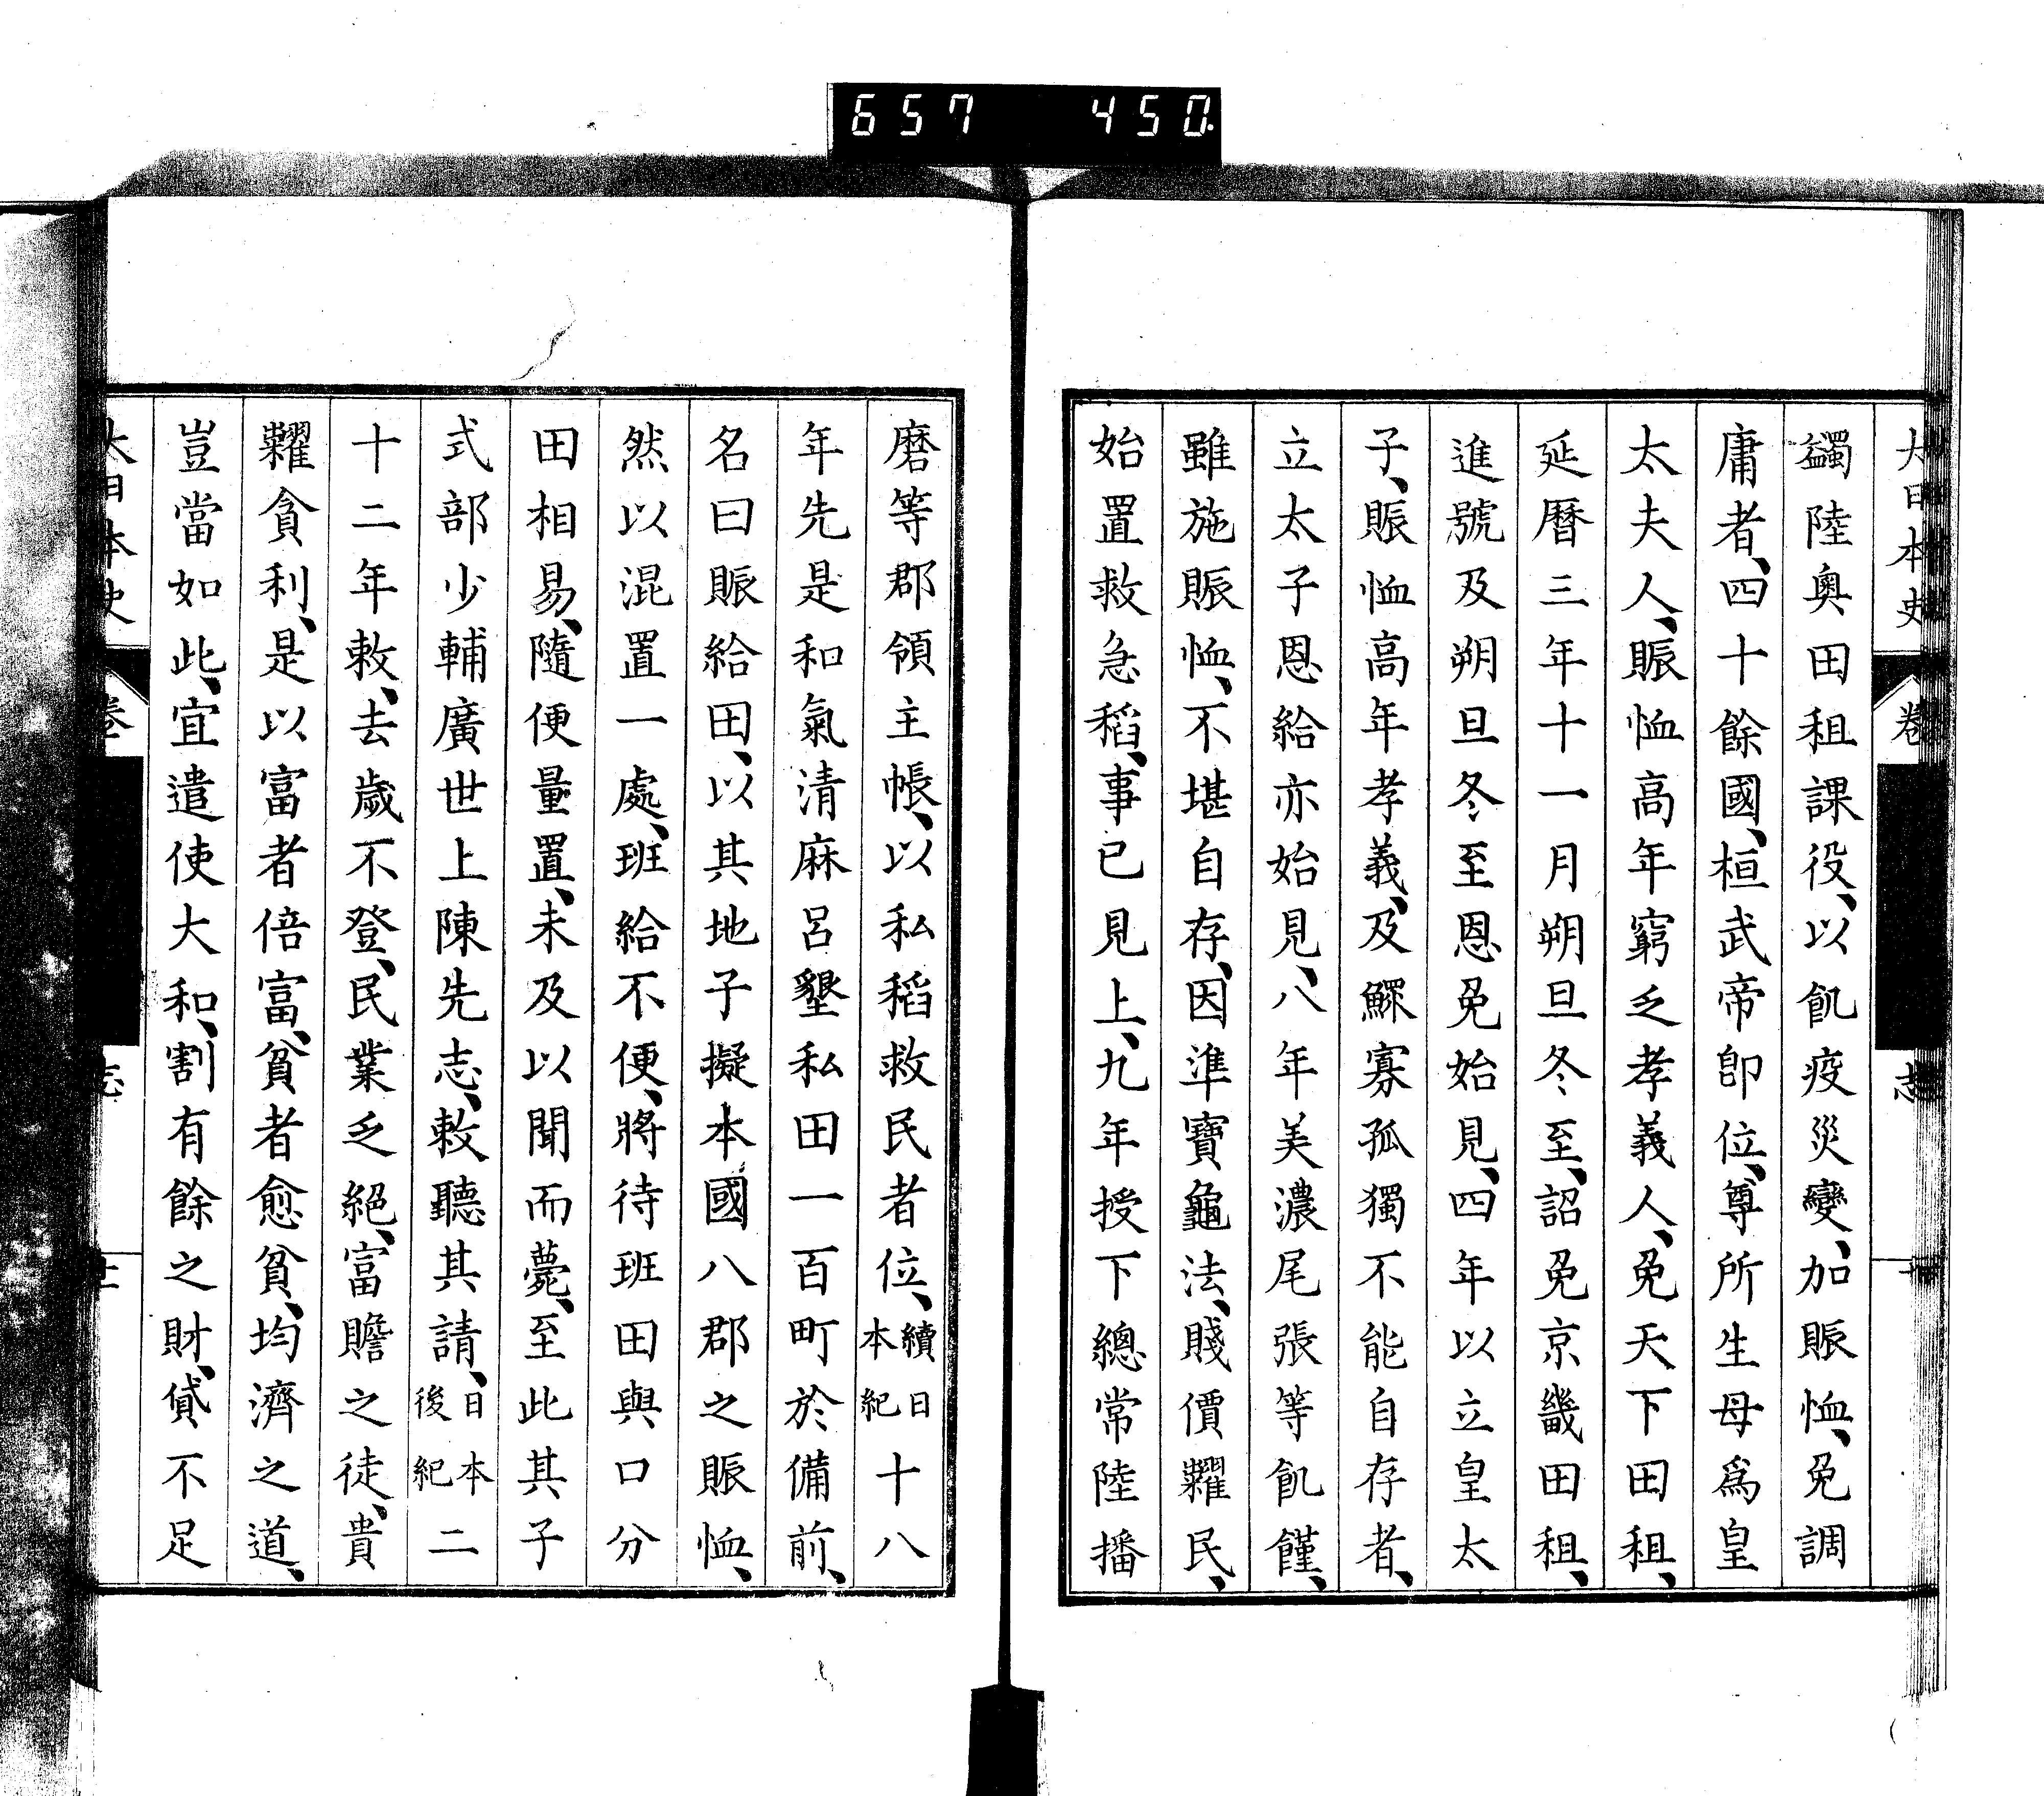 657 450
大日本史 卷 志
蠲陸奧田租課役、以飢疫災變、加賑恤、免調
庸者、四十餘國、桓武帝卽位、尊所生母爲皇
太夫人、賑恤高年窮乏孝義人、免天下田租、
延曆三年十一月朔旦冬至、詔免京畿田租、
進號及朔旦冬至恩免始見、四年以立皇太
子、賑恤高年孝義、及鰥寡孤獨不能自存者、
立太子恩給亦始見、八年美濃尾張等飢饉、
雖施賑恤、不堪自存、因準寶龜法、賤價糶民、
始置救急稻、事已見上、九年授下總常陸播
磨等郡領主帳、以私稻救民者位、續日本紀十八
年先是和氣清麻呂墾私田一百町於備前、
名曰賑給田、以其地子擬本國八郡之賑恤、
然以混置一處、班給不便、將待班田與口分
田相易、隨便量置、未及以聞而薨、至此其子
式部少輔廣世上陳先志、敕聽其請、日本後紀二
十二年敕、去歲不登、民業乏絕、富贍之徒、貴
糶貪利、是以富者倍富、貧者愈貧、均濟之道、
豈當如此、宜遣使大和、割有餘之財、貸不足
大日本史 卷 志